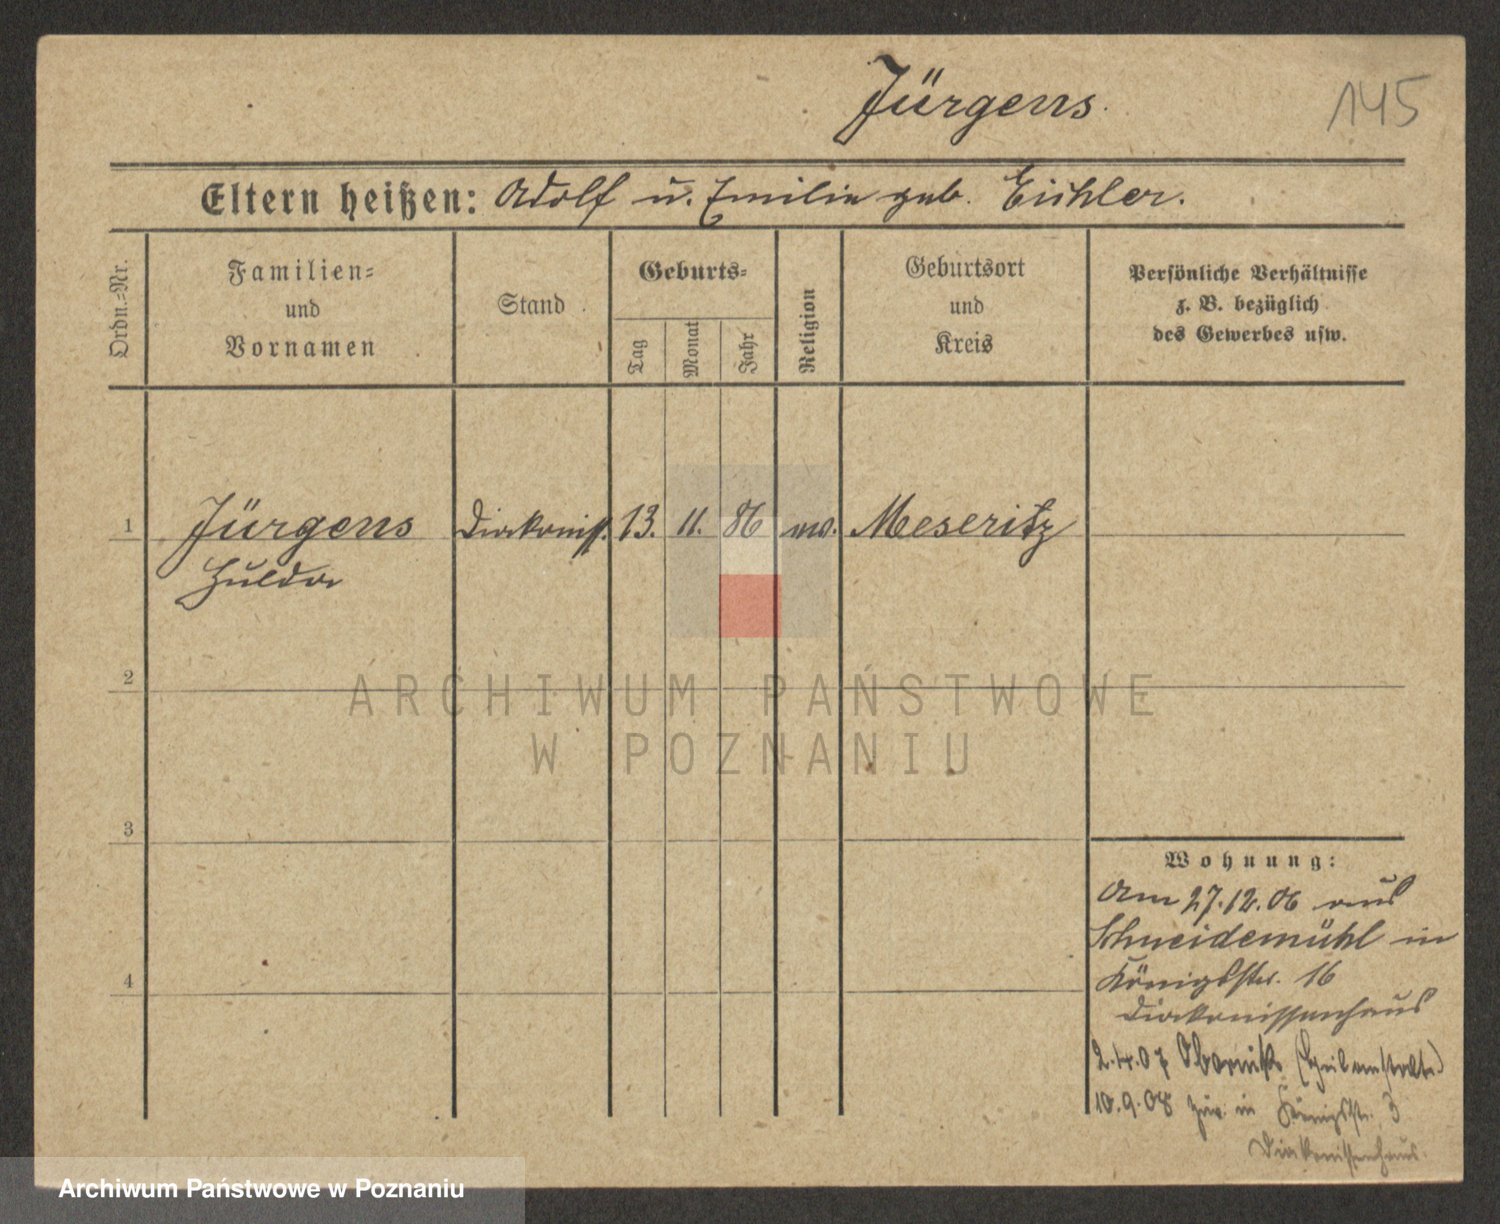 Jürgens.
145
Eltern heißen: Adolf u. Emilie geb. Eichler.
Ordn.=Nr.
Familien=
und
Vornamen
Stand
Geburts=
Tag
Monat
Jahr
Religion
Geburtsort
und
Kreis
Persönliche Verhältnisse
z. B. bezüglich
des Gewerbes usw.
1
Jürgens
Hulda
Diakoniss.
13.
11.
86
ev.
Meseritz
2
ARCHIWUM PAŃSTWOWE
W POZNANIU
3
4
Wohnung:
Am 27.12.06 aus
Schneidemühl in
Königsstr. 16
Diakonissenhaus
2.4.07 Obornik (Heilanstalt)
10.9.08 zur. in Königsstr. 3
Diakonissenhaus.
Archiwum Państwowe w Poznaniu